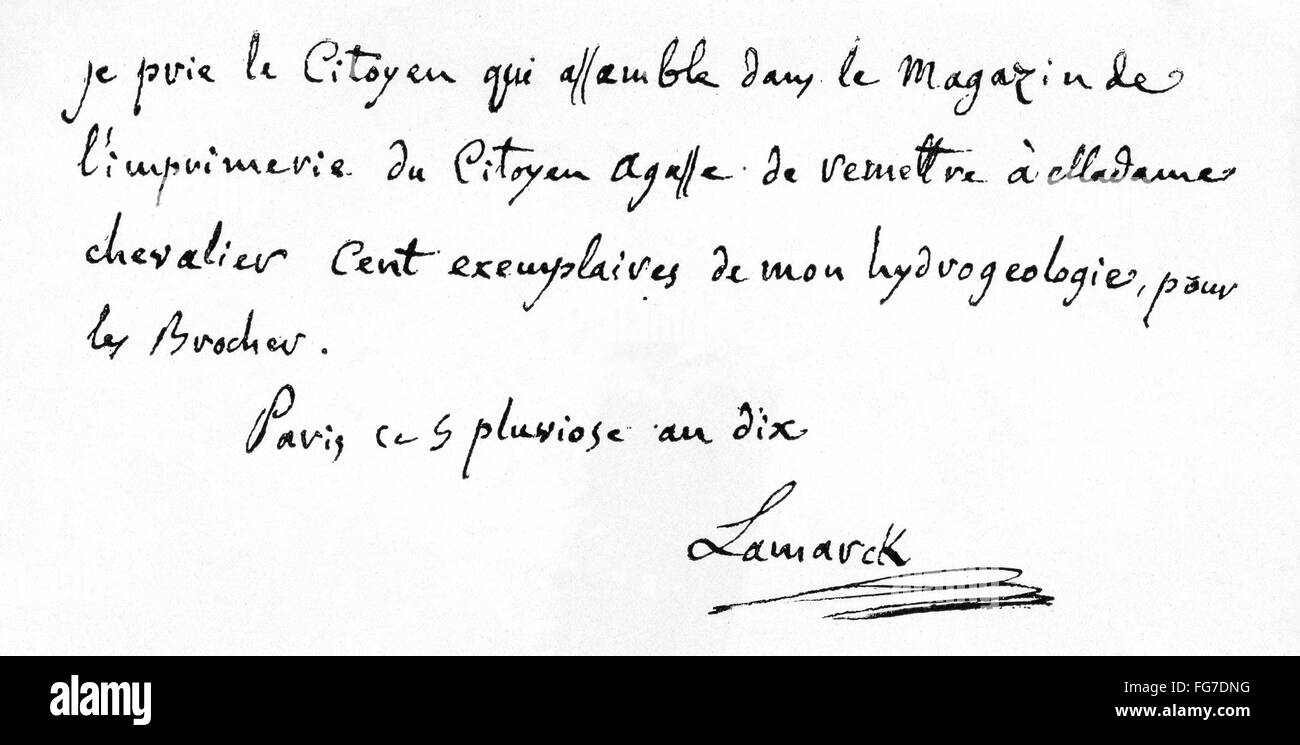 je prie le Citoyen qui assemble dans le Magazin de
l'imprimerie du Citoyen agasse de remettre à Madame
chevalier cent exemplaires de mon hydrogeologie, pour
les Brocher.
Paris ce 5 pluviose an dix
Lamarck
alamy stock photo
FG7DNG
www.alamy.com